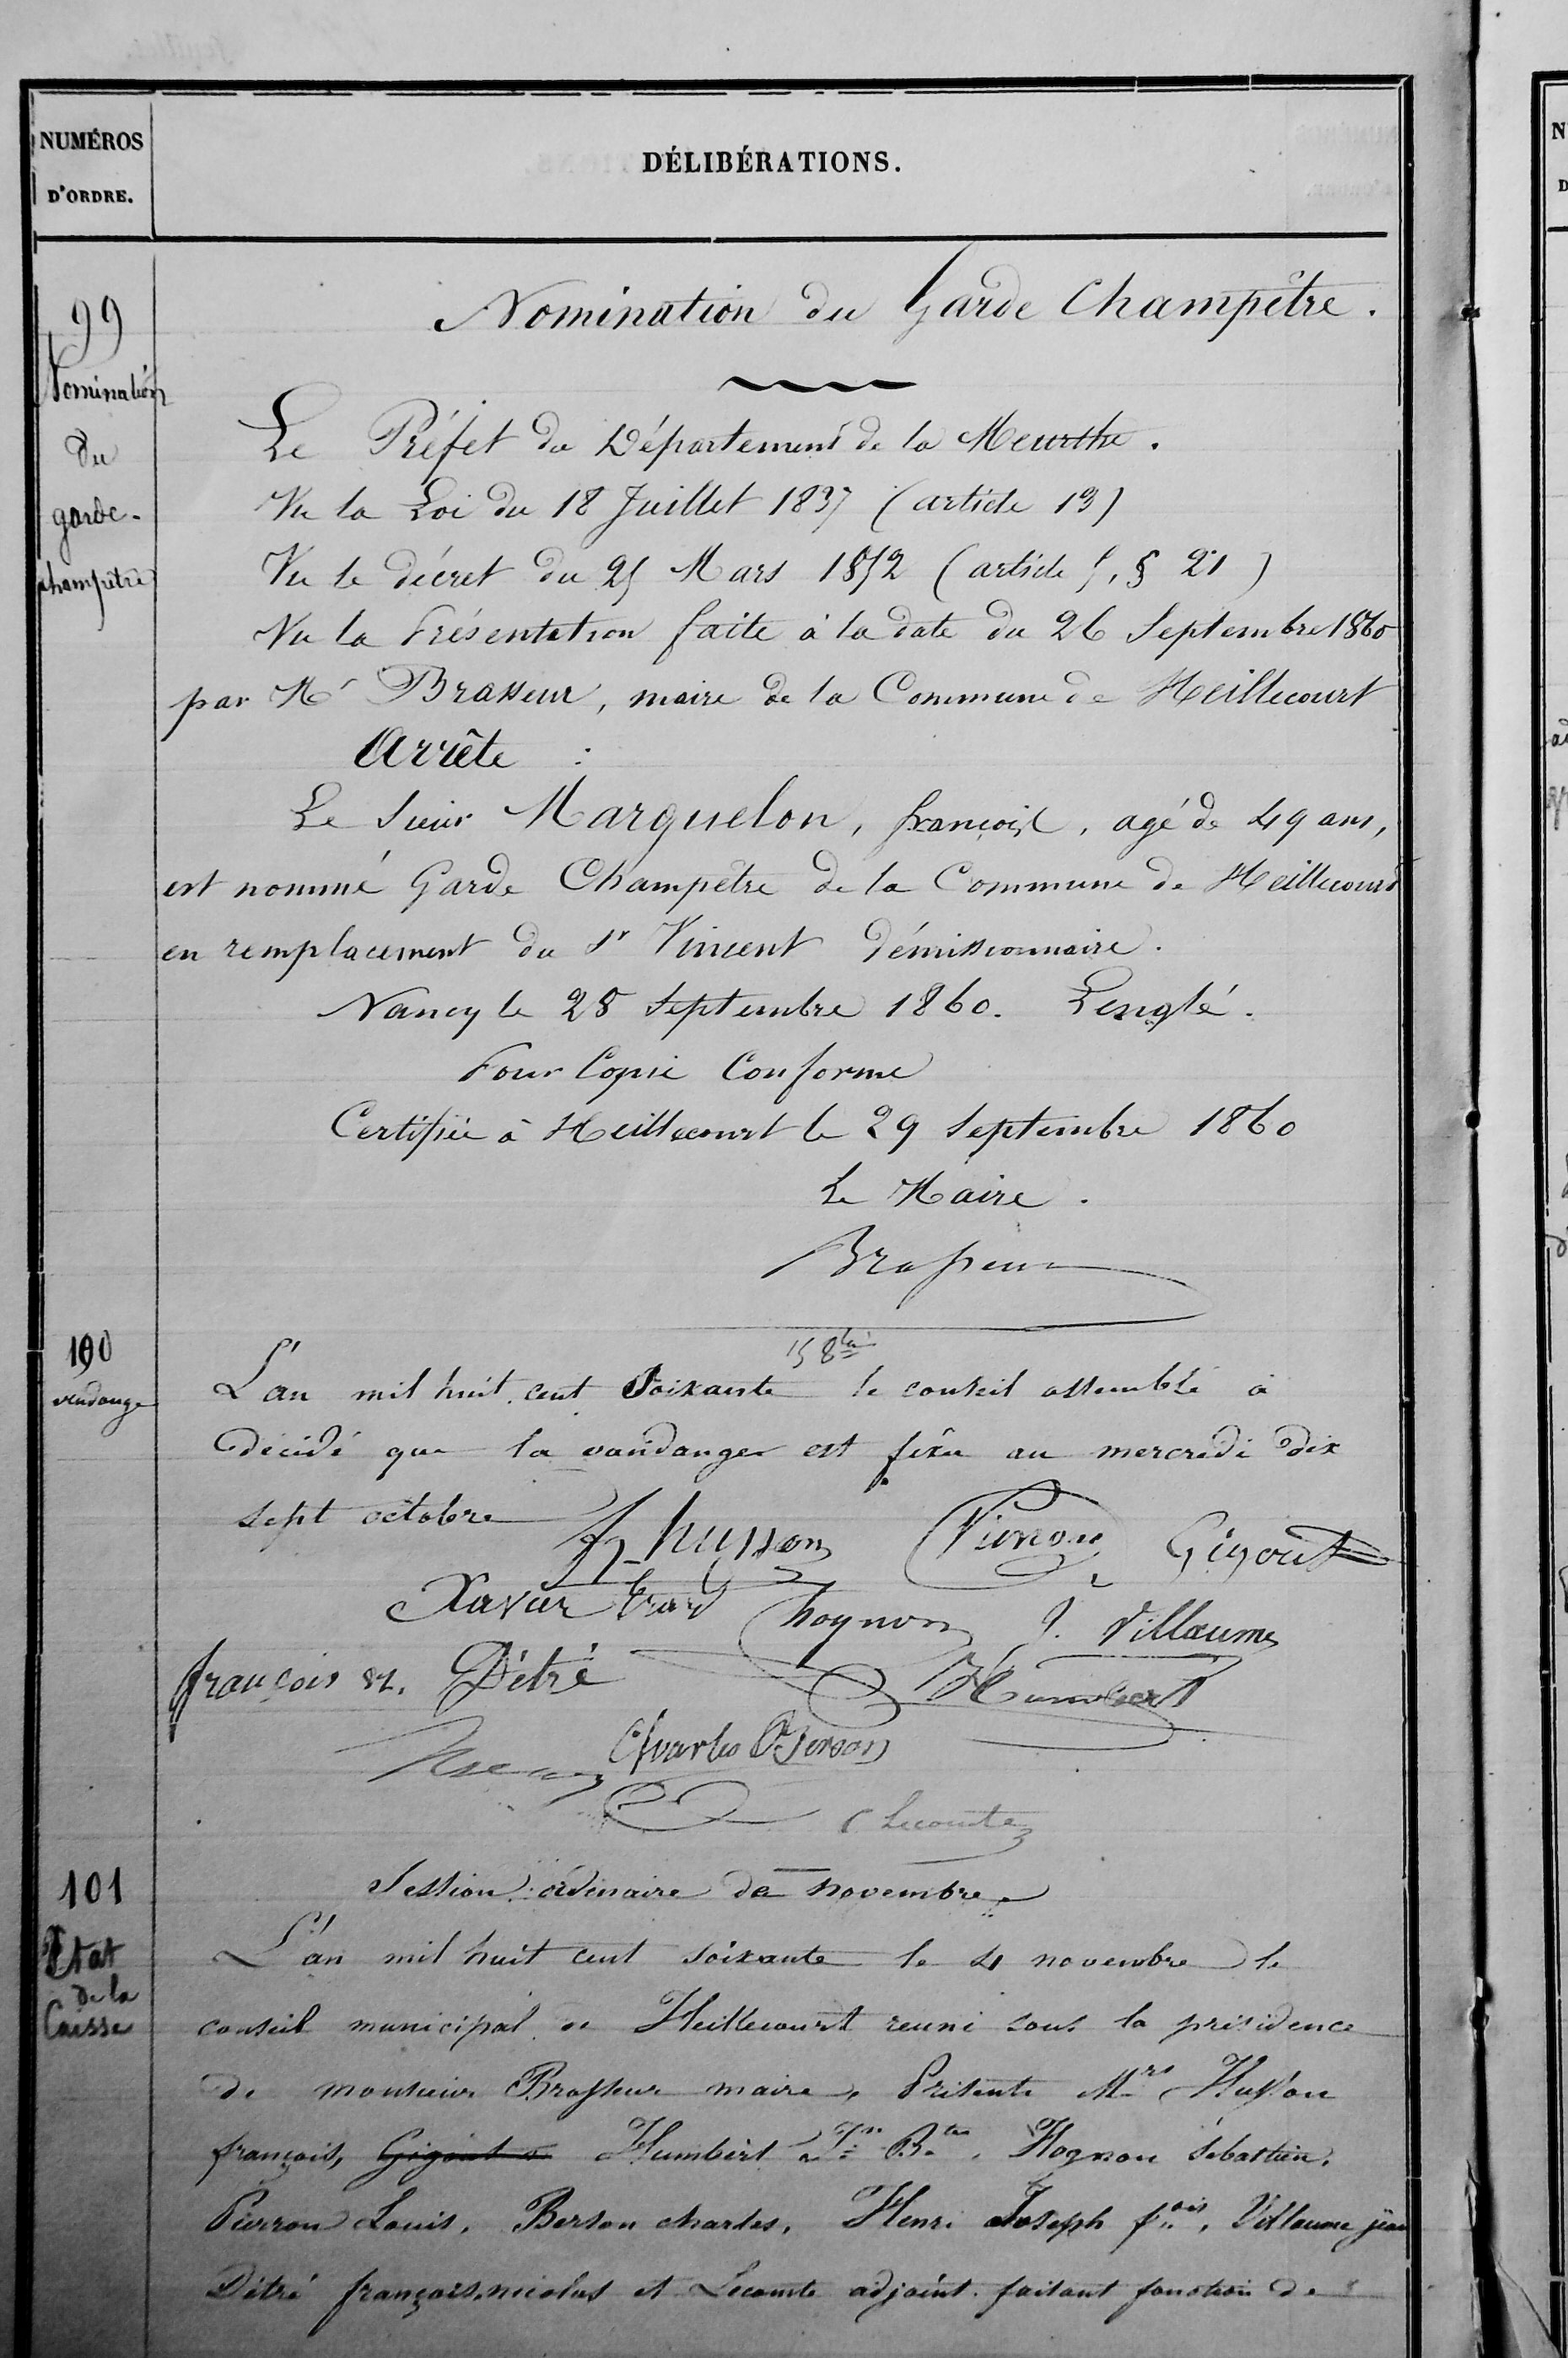 NUMÉROS
D'ORDRE.
DÉLIBÉRATIONS.
99
Nomination
du
garde-
champêtre
Nomination du Garde Champêtre.
Le Préfet du Département de la Meurthe.
Vu la Loi du 18 Juillet 1837 (article 13)
Vu le décret du 25 Mars 1852 (article 5, § 21)
Vu la Présentation faite à la date du 26 Septembre 1860
par Mr Brasseur, maire de la Commune de Heillecourt
Arrête :
Le Sieur Marquelon, françois, agé de 49 ans,
est nommé Garde Champêtre de la Commune de Heillecourt
en remplacement du Sr Vincent démissionnaire.
Nancy le 28 Septembre 1860. Lenglé.
Pour Copie Conforme
Certifiée à Heillecourt le 29 Septembre 1860
Le Maire.
Brasseur
100
vendange
15 8bre
L'an mil huit cent Soixante le conseil assemblé à
décidé que la vandanger est fixée au mercredi dix
sept octobre
husson Pierron Gigout
Xavier hognon J. Villaume
françois n. Détré Humbert
Charles Berson
Lecomte
101
Etat
de la
Caisse
Session ordinaire de novembre
L'an mil huit cent soixante le 4 novembre le
conseil municipal de Heillecourt reuni sous la présidence
de monsieur Brasseur maire, Présents Mrs Husson
françois, Gigout Humbert Jn Bte, Hognon sébastien,
Pierron Louis, Berson charles, Henri Joseph fois, Villaume jean
Détré françois, nicolas et Lecomte adjoint faisant fonction de
N
D